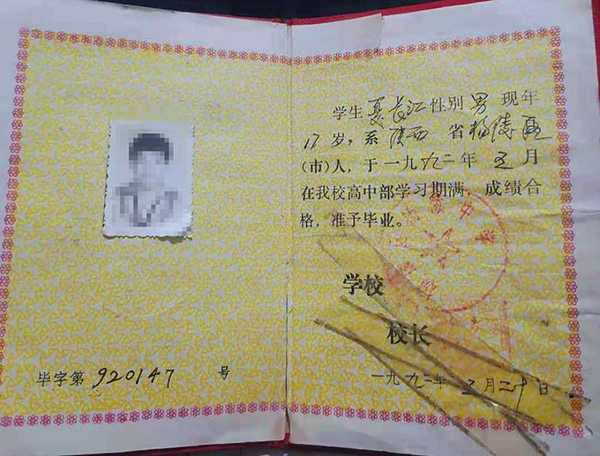 毕字第 920147 号
学生 夏长江 性别 男 现年
17岁，系 陕西 省 杨陵 区
(市)人，于一九九二年 五 月
在我校高中部学习期满，成绩合
格，准予毕业。
学校
校长
一九九二年 五月二十日